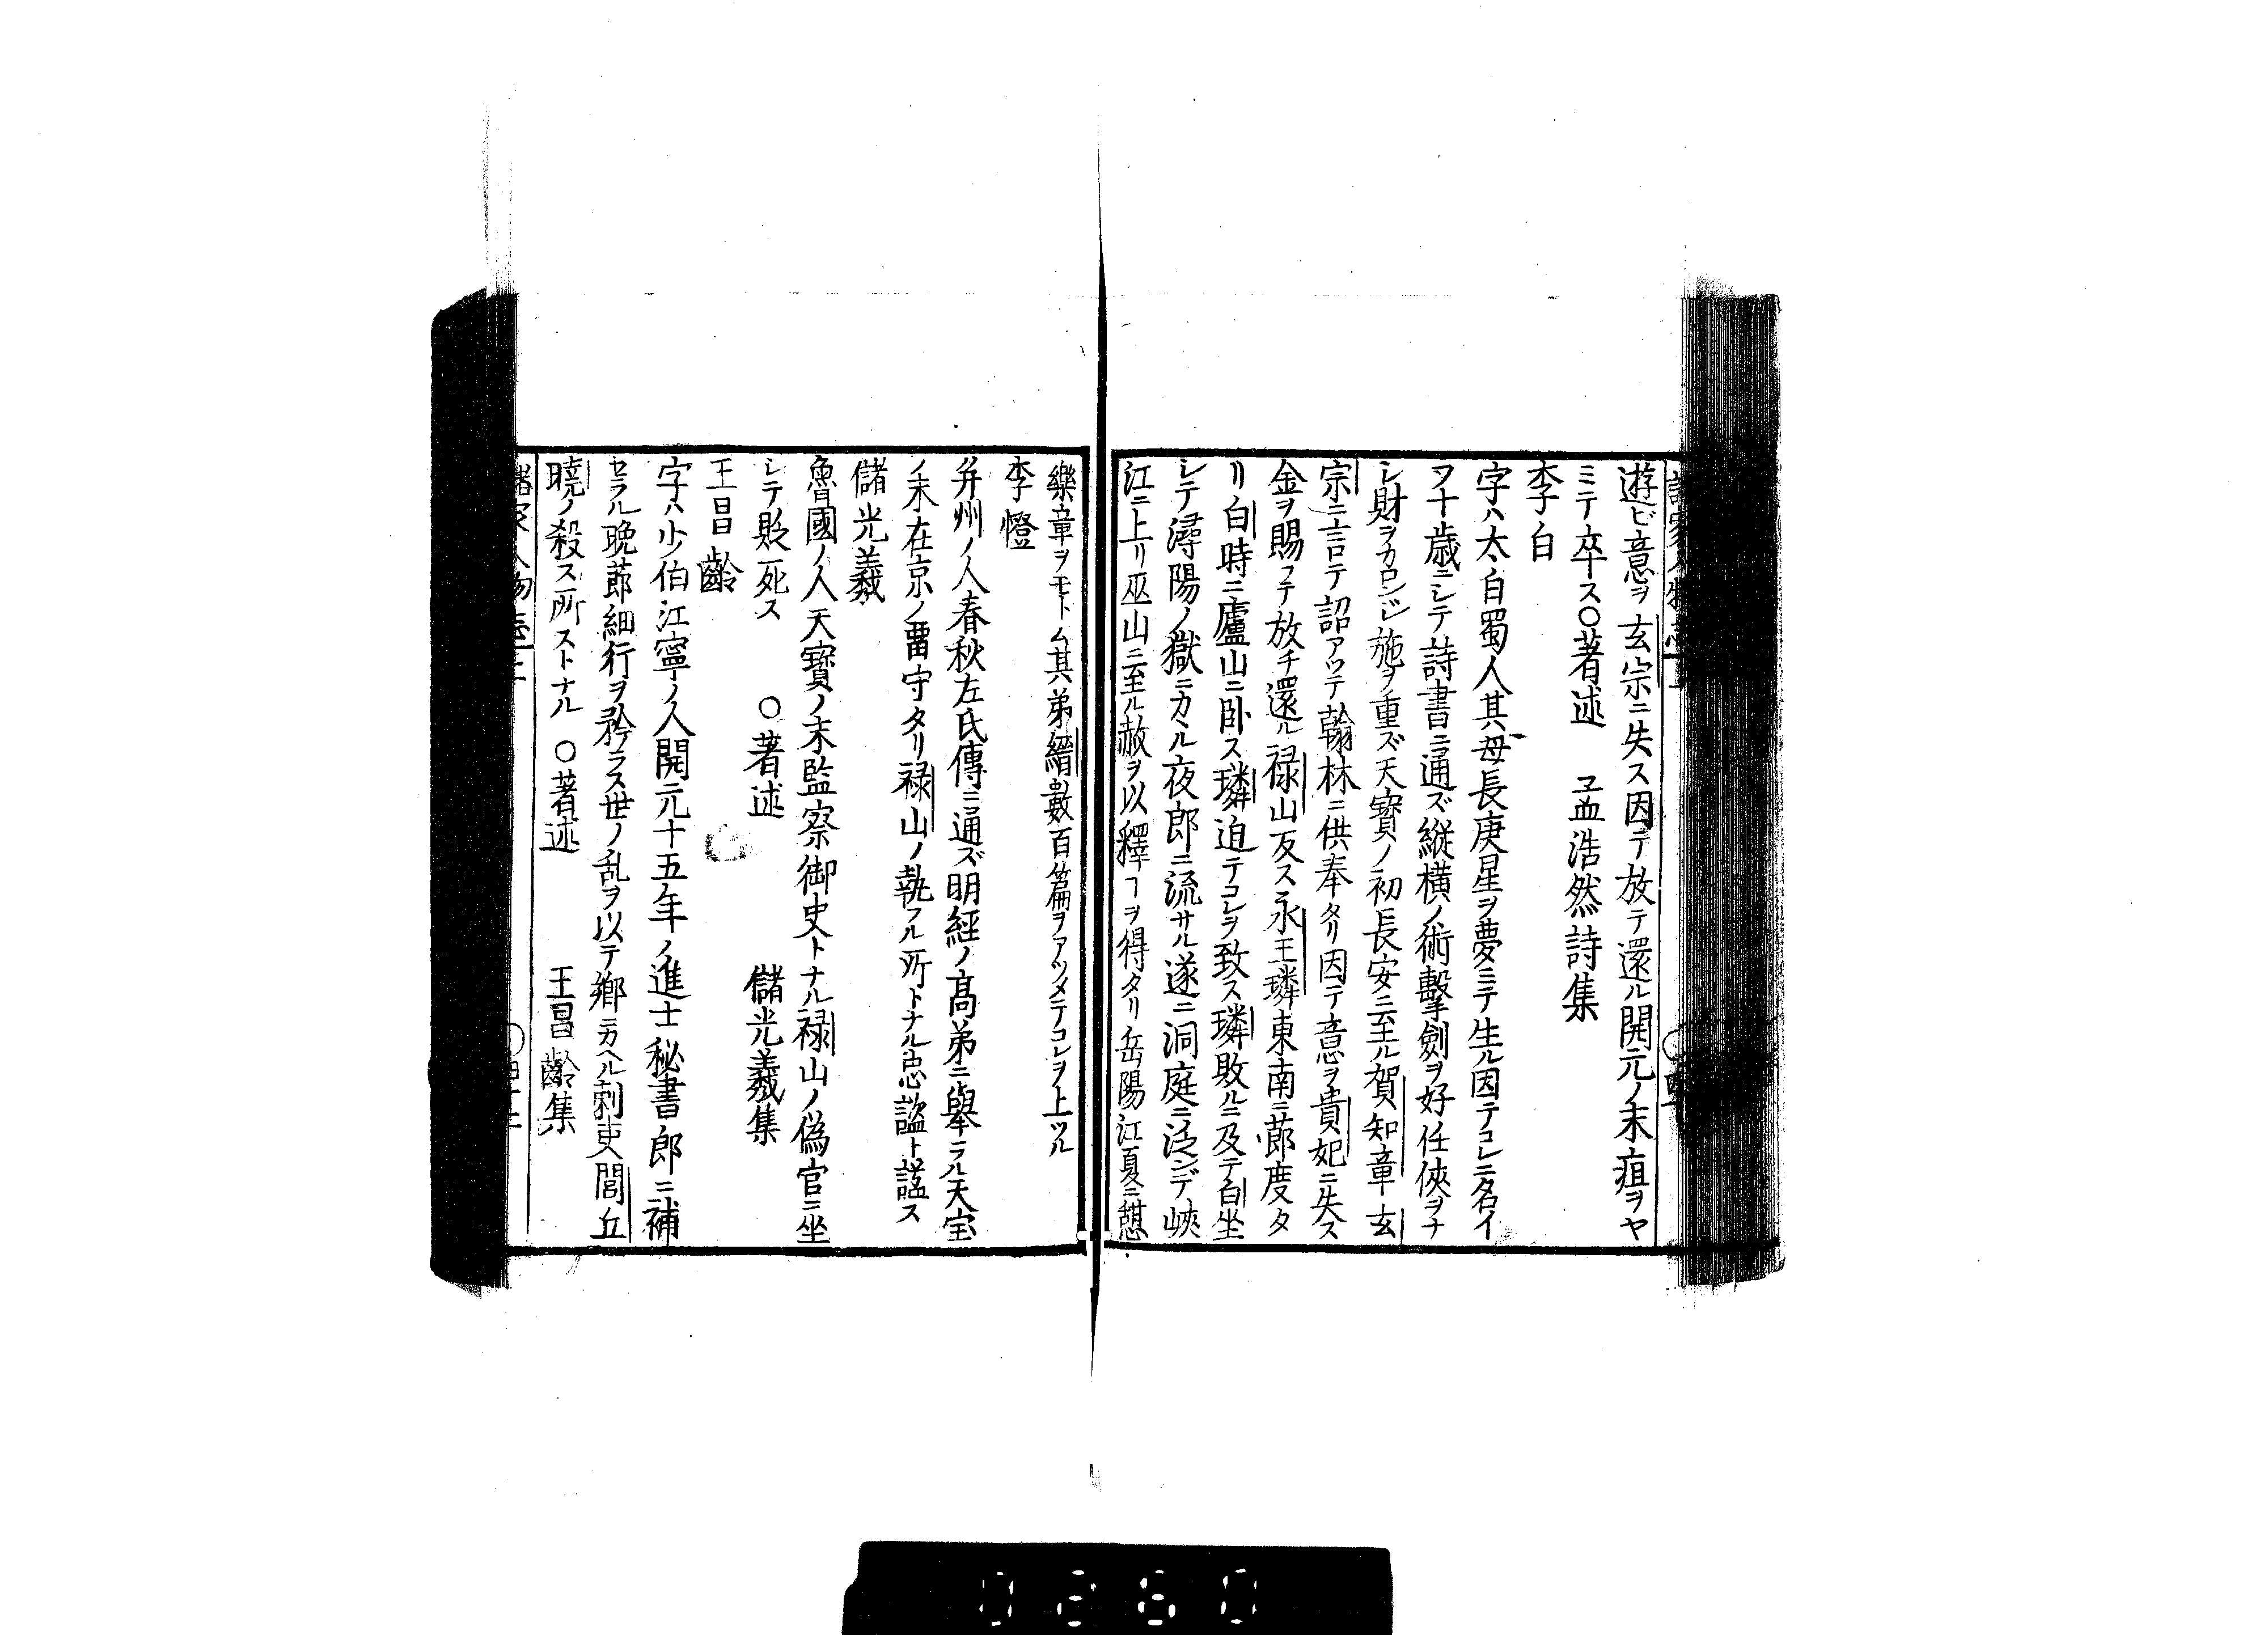 遊ビ意ヲ玄宗ニ失ス因テ放テ還ル開元ノ末疽ヲヤ
ミテ卒ス〇著述　孟浩然詩集
李白
字ハ太白蜀人其母長庚星ヲ夢ミテ生ル因テコレニ名イ
ヲ十歳ニシテ詩書ニ通ズ縦横ノ術擊劍ヲ好任俠ヲナ
シ財ヲカロンジ施ヲ重ズ天寳ノ初長安ニ至ル賀知章玄
宗ニ言テ詔アツテ翰林ニ供奉タリ因テ意ヲ貴妃ニ失ス
金ヲ賜フテ放チ還ル禄山反ス永王璘東南ニ莭度タ
リ白時ニ廬山ニ卧ス璘迫テコレヲ致ス璘敗ルニ及テ白坐
シテ潯陽ノ獄ニカヽル夜郎ニ流サル遂ニ洞庭ニ泛ンデ峽
江ニ上リ巫山ニ至ル赦ヲ以釋ヿヲ得タリ岳陽江夏ニ憩
樂章ヲモトム其弟縉數百篇ヲアツメテコレヲ上ツル
李憕
并州ノ人春秋左氏傳ニ通ズ明經ノ髙弟ニ舉ラル天宝
ノ末在京ノ畱守タリ禄山ノ執フル所トナル忠懿ト諡ス
儲光羲
魯國ノ人天寳ノ末監察御史トナル禄山ノ偽官ニ坐
シテ貶死ス　〇著述　儲光羲集
王昌齡
字ハ少伯江寧ノ人開元十五年ノ進士秘書郎ニ補
セラル晩莭細行ヲ矜ラス世ノ乱ヲ以テ郷ニカヘル刺吏閭丘
曉ノ殺ス所ストナル　〇著述　王昌齡集
0280